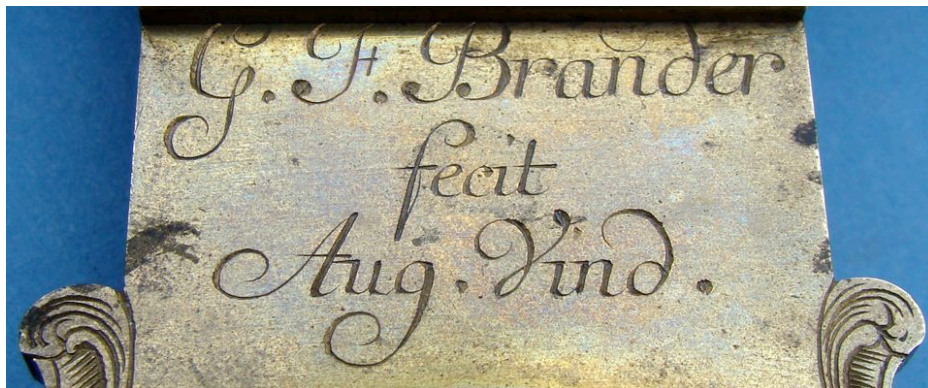 G. F. Brander
fecit
Aug. Vind.